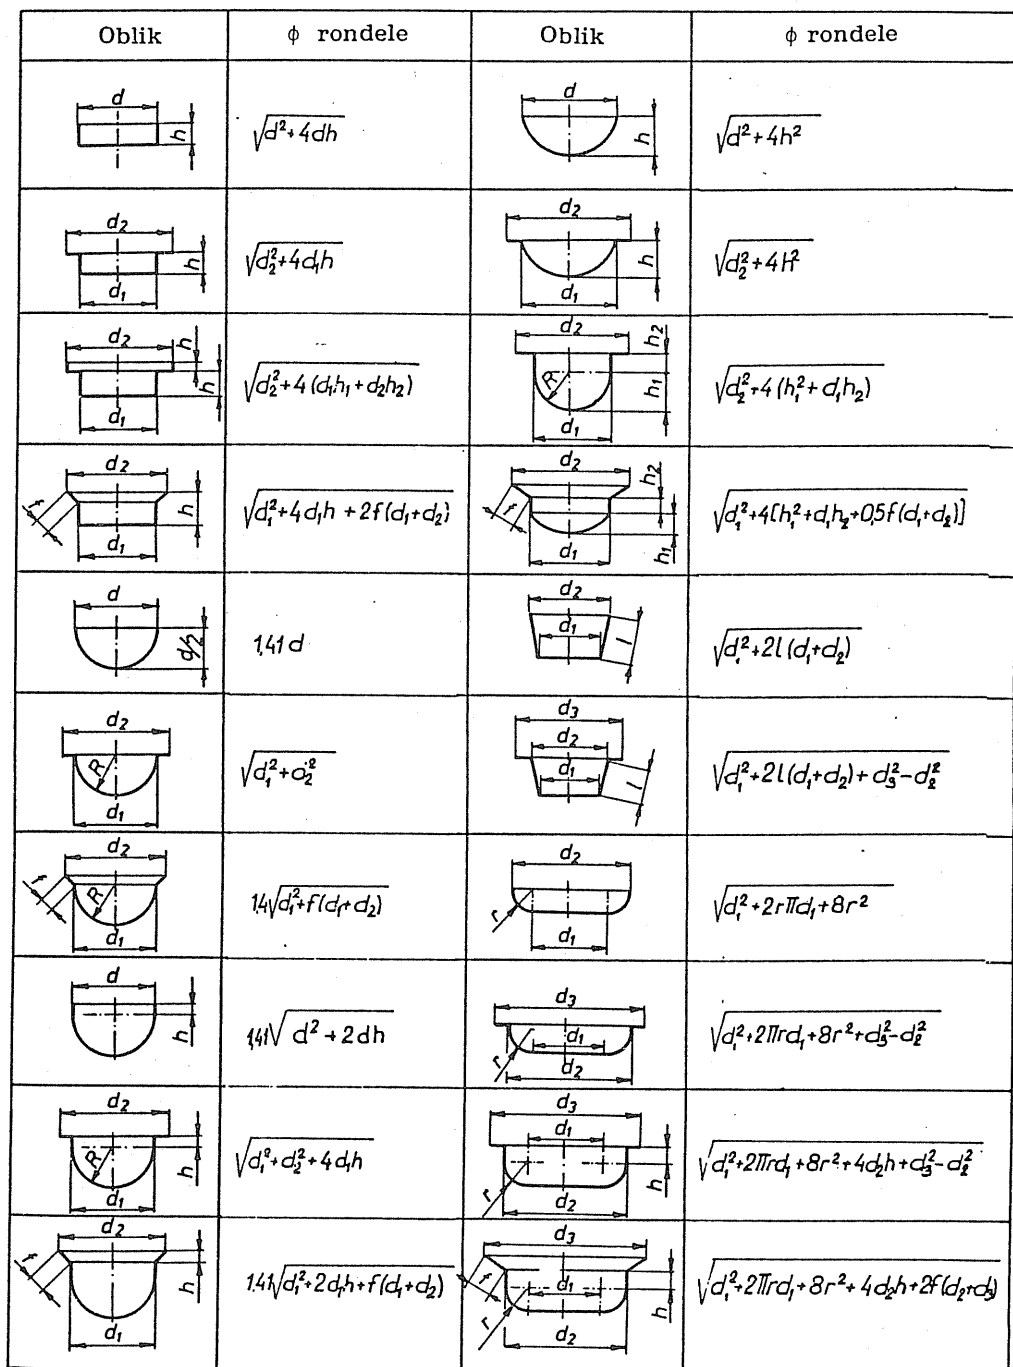 Oblik ϕ rondele Oblik ϕ rondele
d h √d²+4dh d h √d²+4h²
d₂ h d₁ √d₂²+4d₁h d₂ h d₁ √d₂²+4h²
d₂ h h d₁ √d₂²+4(d₁h₁+d₂h₂) d₂ h₂ R h₁ d₁ √d₂²+4(h₁²+d₁h₂)
d₂ f h d₁ √d₁²+4d₁h+2f(d₁+d₂) d₂ h₂ f h₁ d₁ √d₁²+4[h₁²+d₁h₂+0,5f(d₁+d₂)]
d d/2 1,41 d d₂ d₁ l √d₁²+2l(d₁+d₂)
d₂ R d₁ √d₁²+d₂² d₃ d₂ d₁ l √d₁²+2l(d₁+d₂)+d₃²-d₂²
d₂ f R d₁ 1,4√d₁²+f(d₁+d₂) d₂ r d₁ √d₁²+2rπd₁+8r²
d h 1,41√d²+2dh d₃ d₁ r d₂ √d₁²+2πrd₁+8r²+d₃²-d₂²
d₂ h R d₁ √d₁²+d₂²+4d₁h d₃ d₁ h r d₂ √d₁²+2πrd₁+8r²+4d₂h+d₃²-d₂²
d₂ f h d₁ 1.41√d₁²+2d₁h+f(d₁+d₂) d₃ f d₁ h r d₂ √d₁²+2πrd₁+8r²+4d₂h+2f(d₂+d₃)